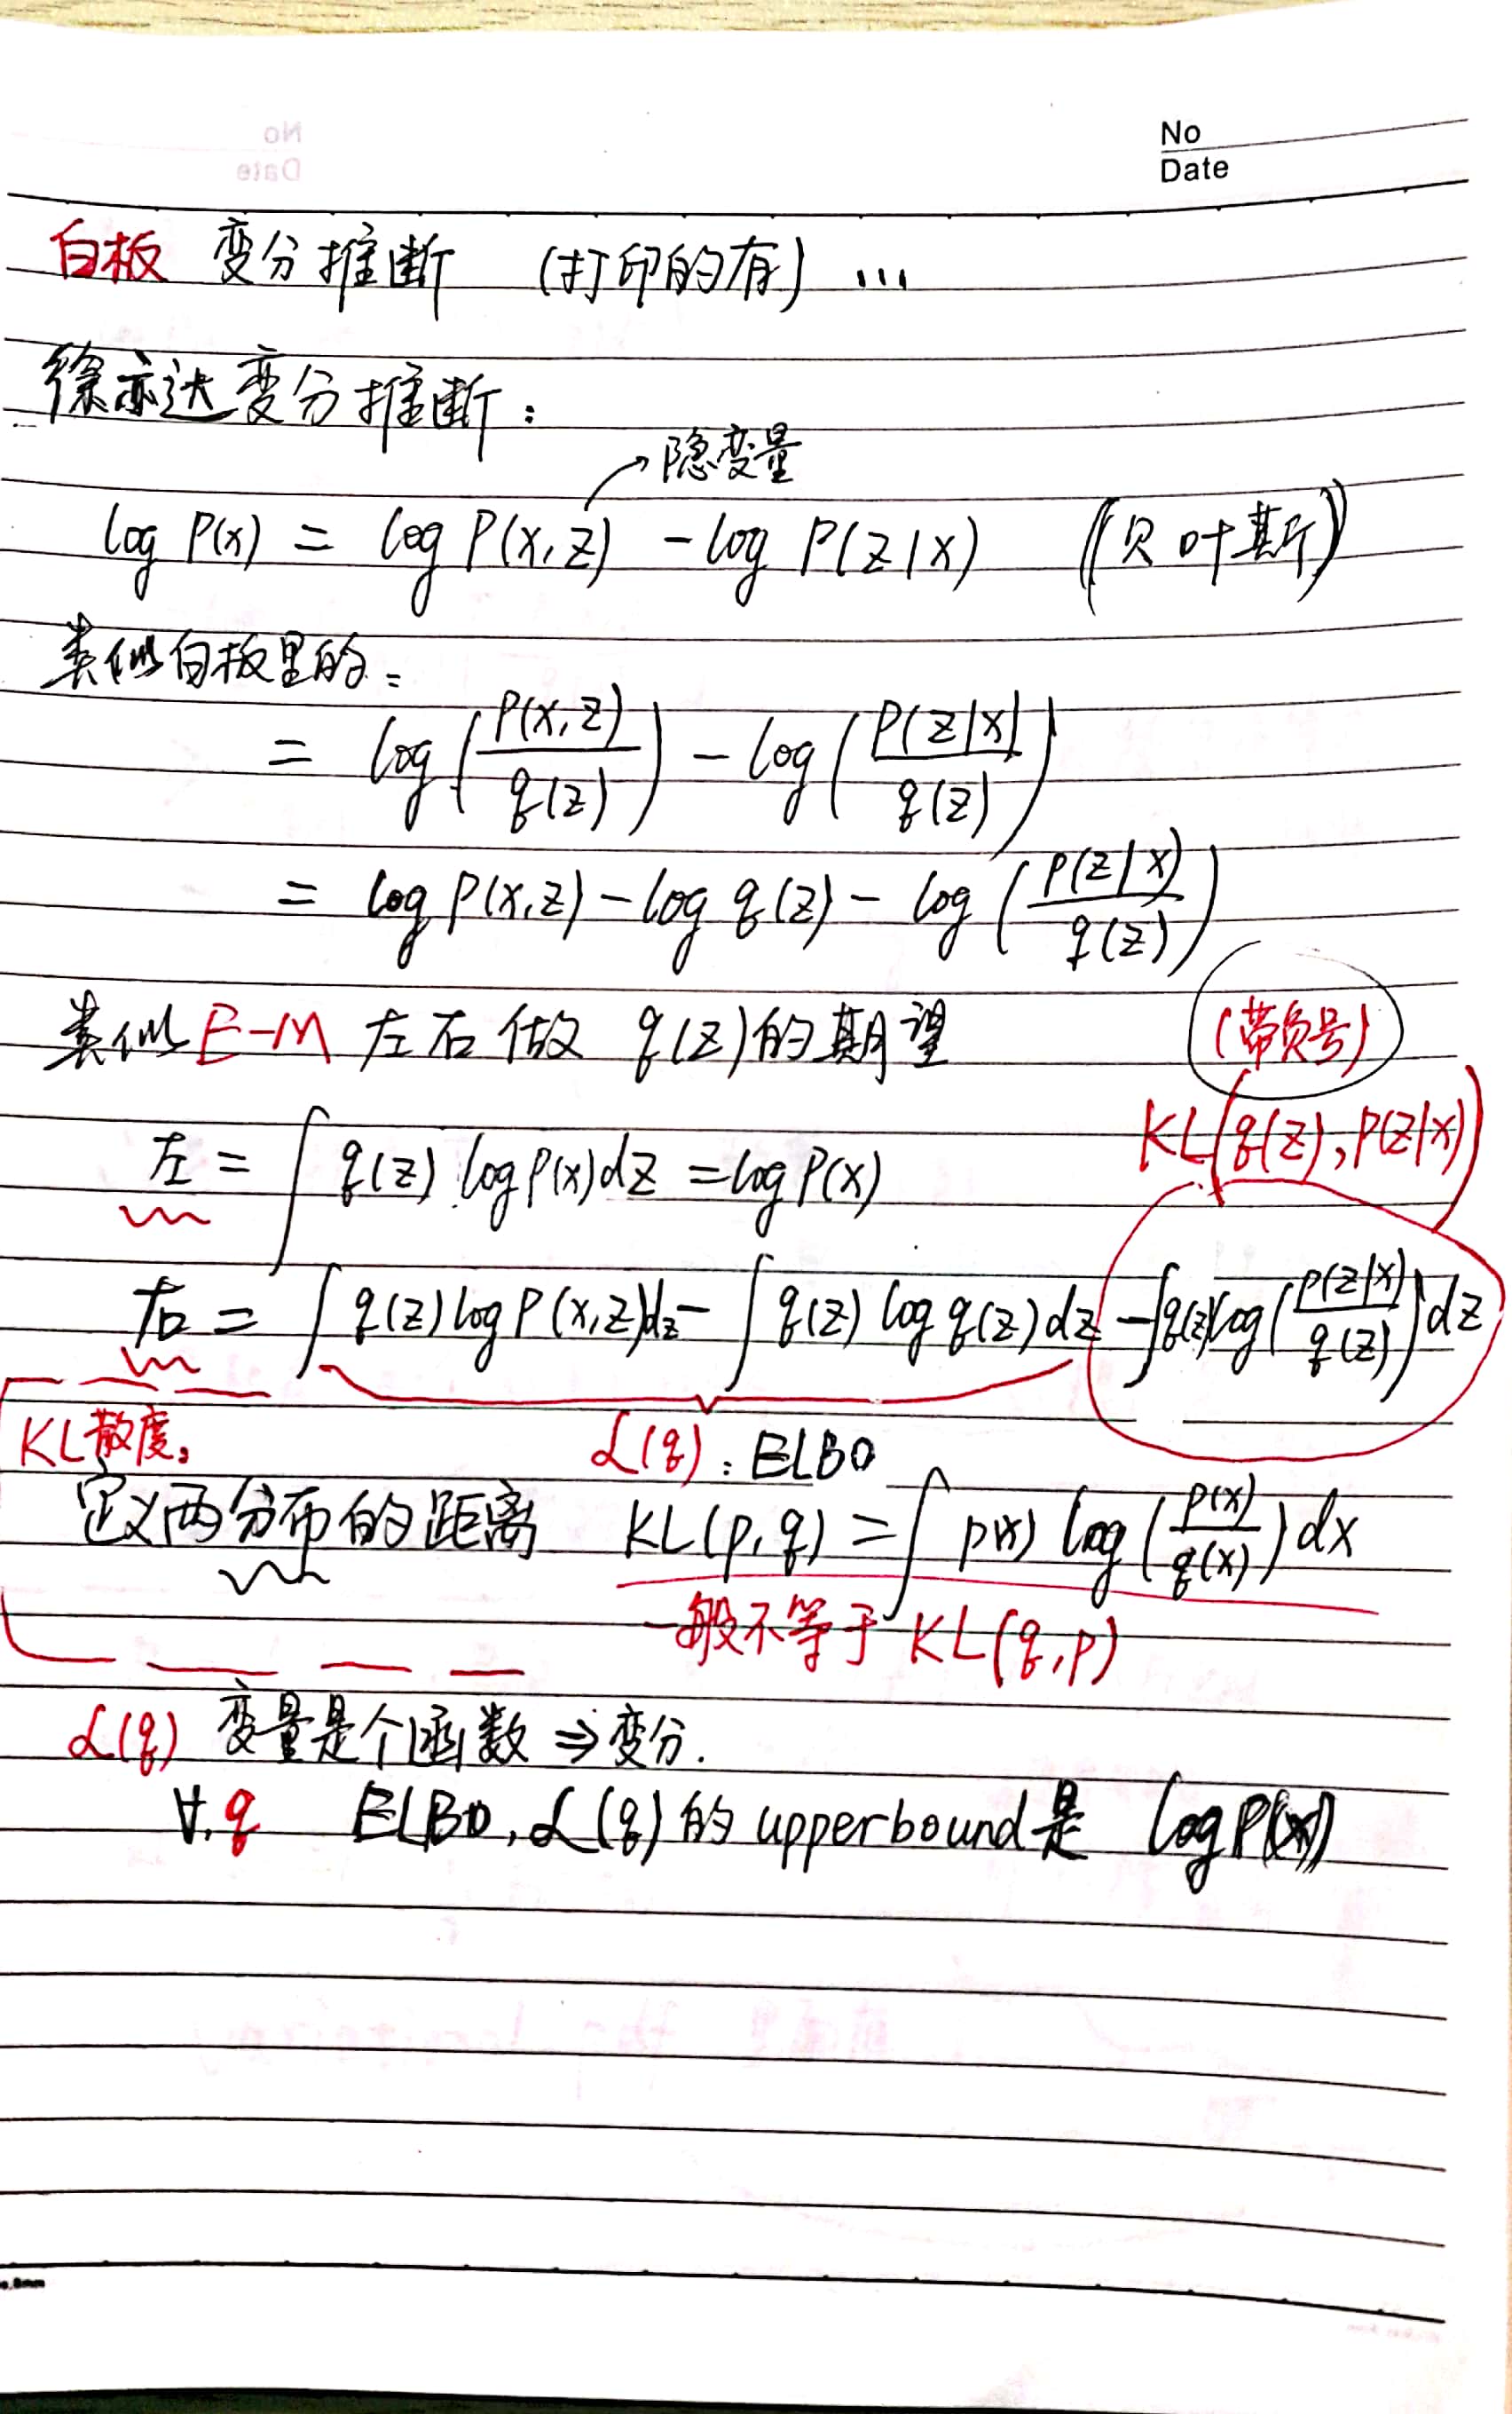 No
Date
白板 变分推断 (打印的有) ...
徐亦达变分推断:
→隐变量
log P(x) = log P(x,z) - log P(z|x) (贝叶斯)
类似白板里的:
= log(P(x,z)/q(z)) - log(P(z|x)/q(z))
= log P(x,z) - log q(z) - log(P(z|x)/q(z))
类似 E-M 左右做 q(z)的期望 (带负号)
KL(q(z), P(z|x))
左 = ∫ q(z) log P(x) dz = log P(x)
右 = ∫ q(z) log P(x,z) dz - ∫ q(z) log q(z) dz - ∫ q(z) log(P(z|x)/q(z)) dz
KL散度。 L(q): ELBO
定义两分布的距离 KL(p,q) = ∫ p(x) log(p(x)/q(x)) dx
一般不等于 KL(q,p)
L(q) 变量是个函数 ⇒ 变分.
∀.q ELBO, L(q) 的 upperbound是 log P(x)